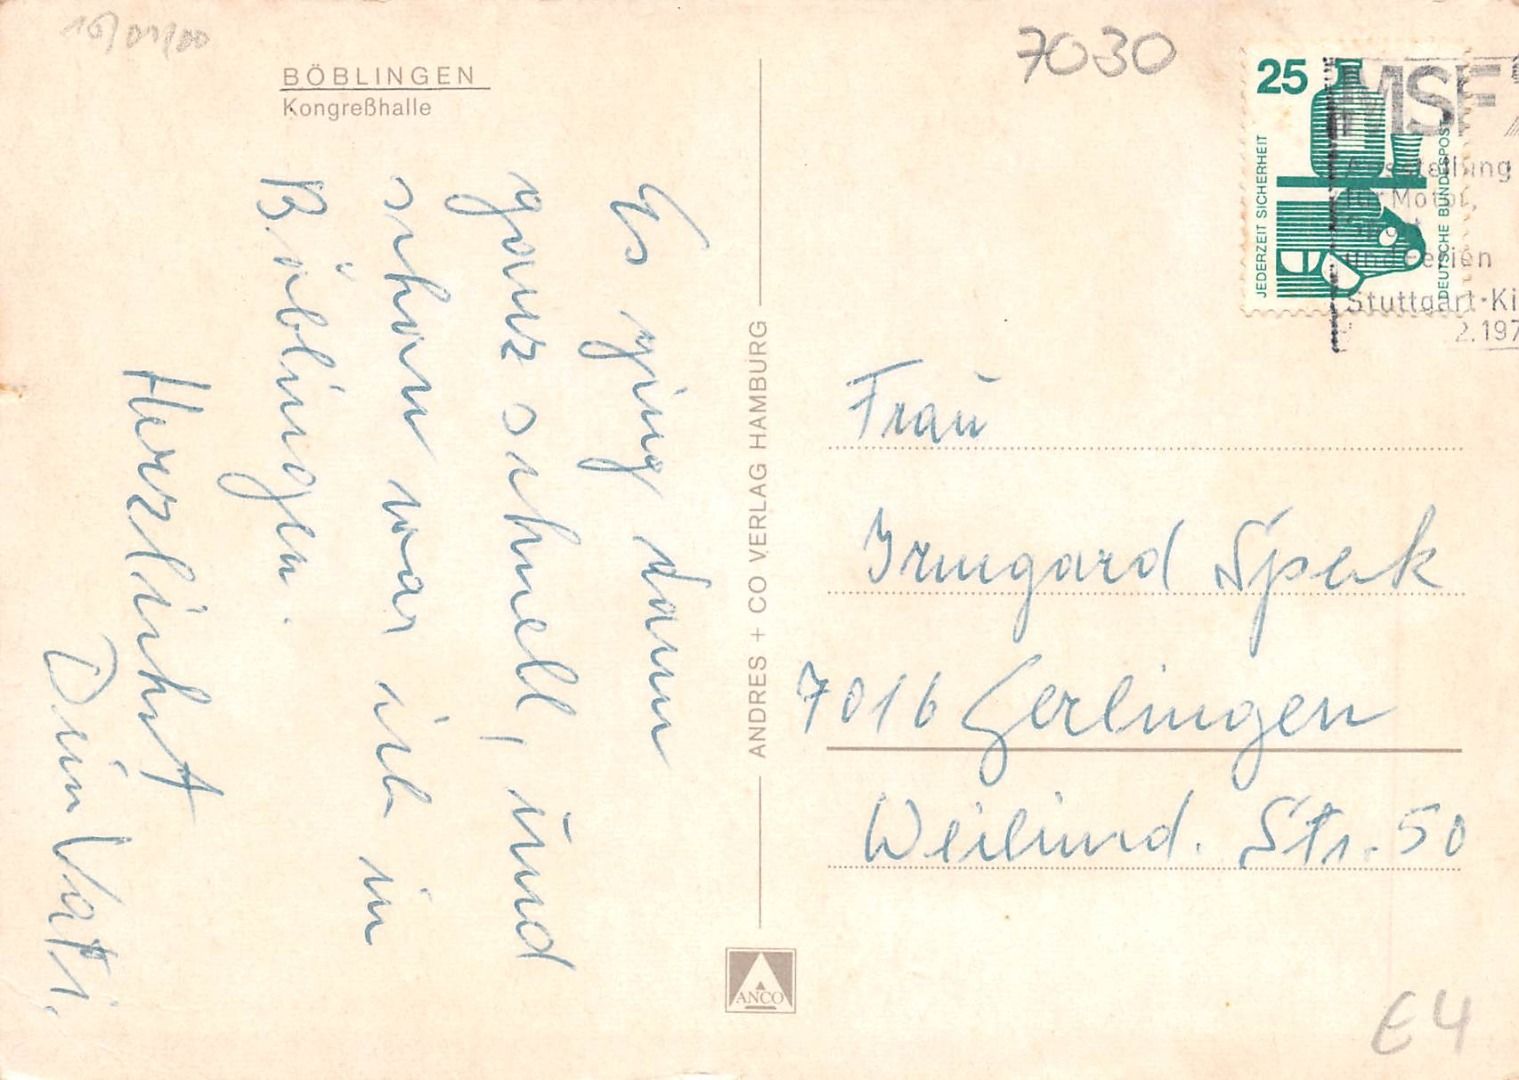 16/01/00
BÖBLINGEN
Kongreßhalle
Es ging dann
ganz schnell, und
schon war ich in
Böblingen.
Herzlichst
Dein Vati.
ANDRES + CO VERLAG HAMBURG
ANCO
7030
25
JEDERZEIT SICHERHEIT
DEUTSCHE BUNDESPOST
MSF
Ausstellung
für Motor,
Sport
und Ferien
Stuttgart-Ki
2.197
Frau
Irmgard Speck
7016 Gerlingen
Weilimd. Str. 50
E4